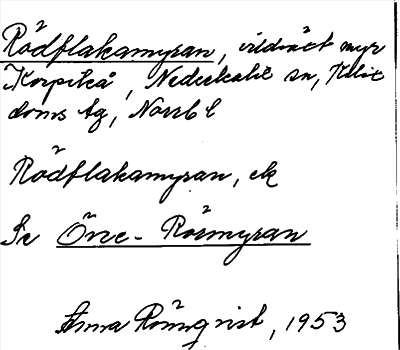 Rödflakamyran, vildvuxt myr
Korpikå, Nederkalix sn, Kalix
doms tg, Norrb l
Rödflakamyran, ek
Se Övre-Rörmyran
Anna Rönnqvist, 1953